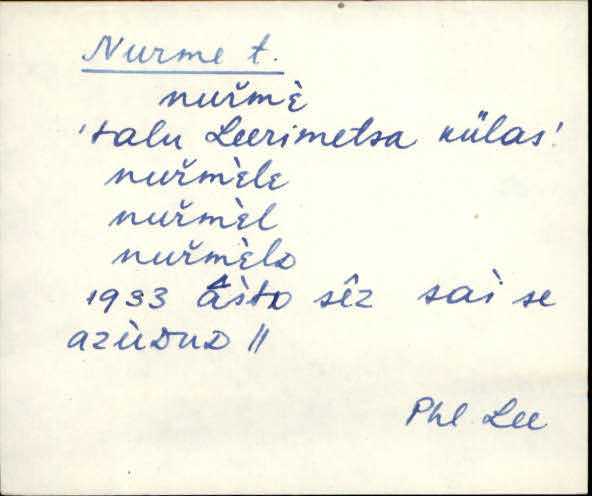 Nurme t.
nuřmè
'talu Leerimetsa külas'
nuřmèle
nuřmèl
nuřmèlᴅ
1933 âs̀tᴅ sêz sai se
azùᴅuᴅ ||
Phl Lee